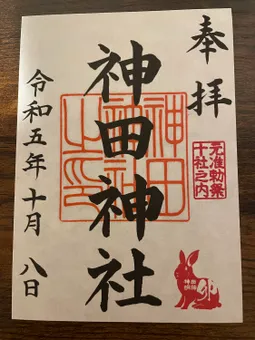 奉拝
元准勅祭
十社之内
神田神社
神田神社之印
卯
令和五年十月八日